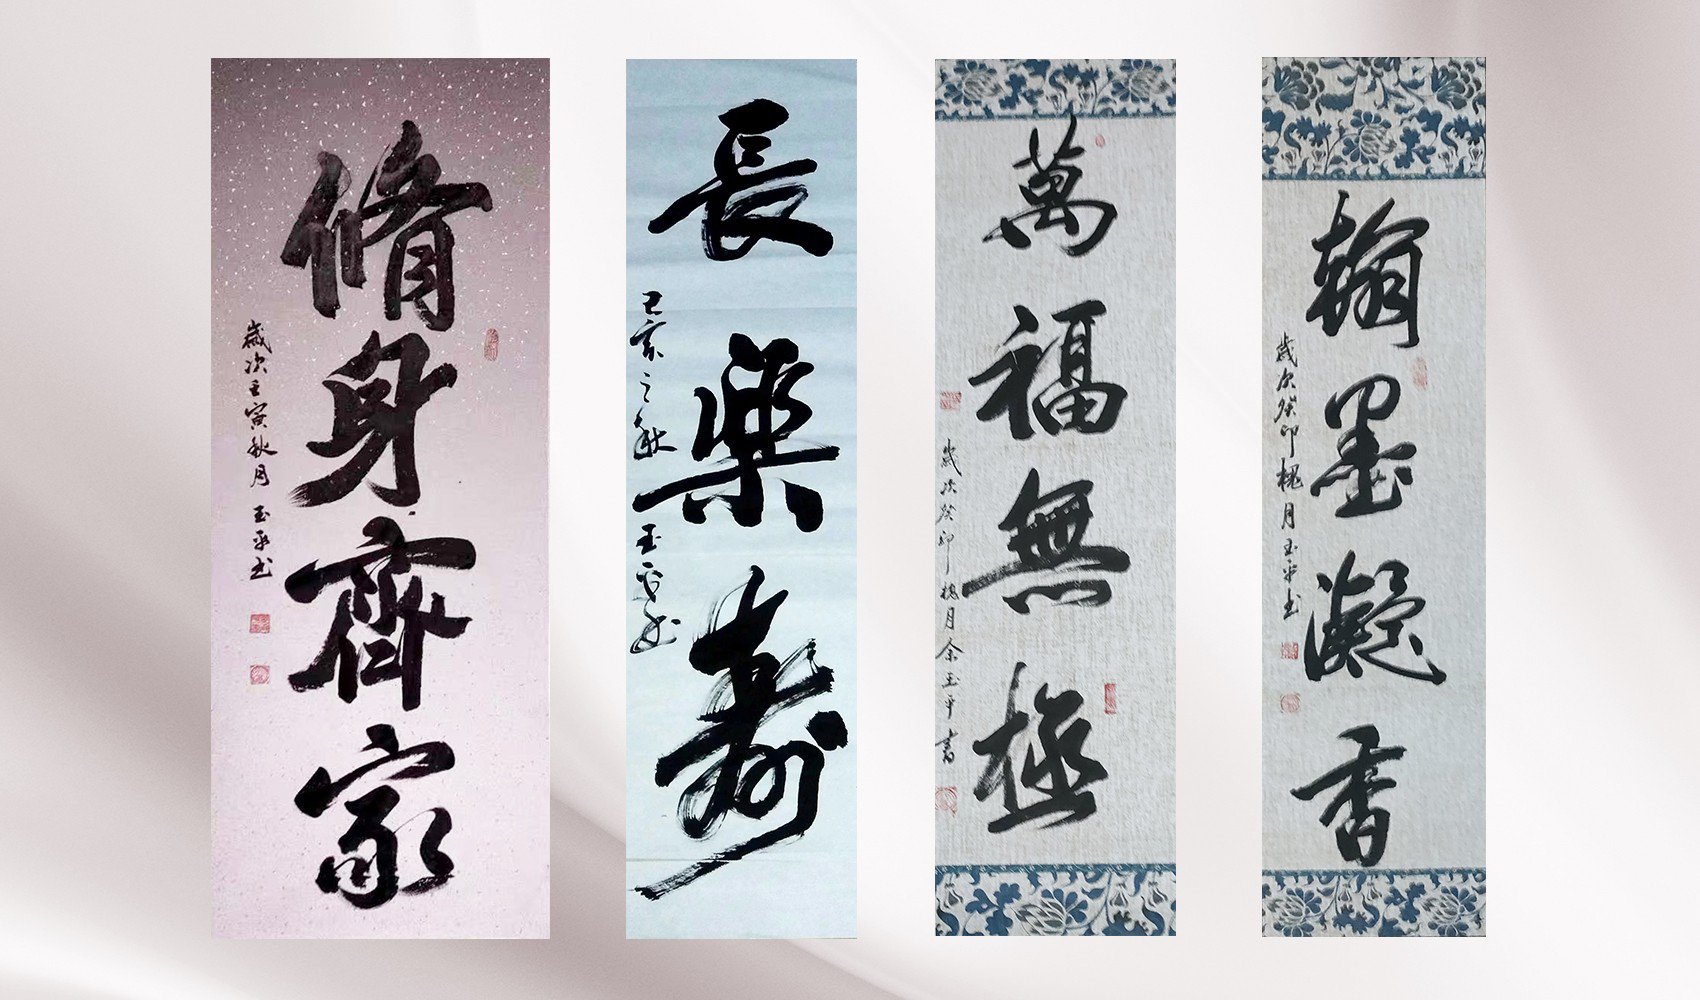 脩身齊家
歲次壬寅秋月 玉平书
長樂壽
己亥之秋
玉平书
萬福無極
歲次癸卯槐月余玉平書
翰墨凝香
歲次癸卯槐月玉平书